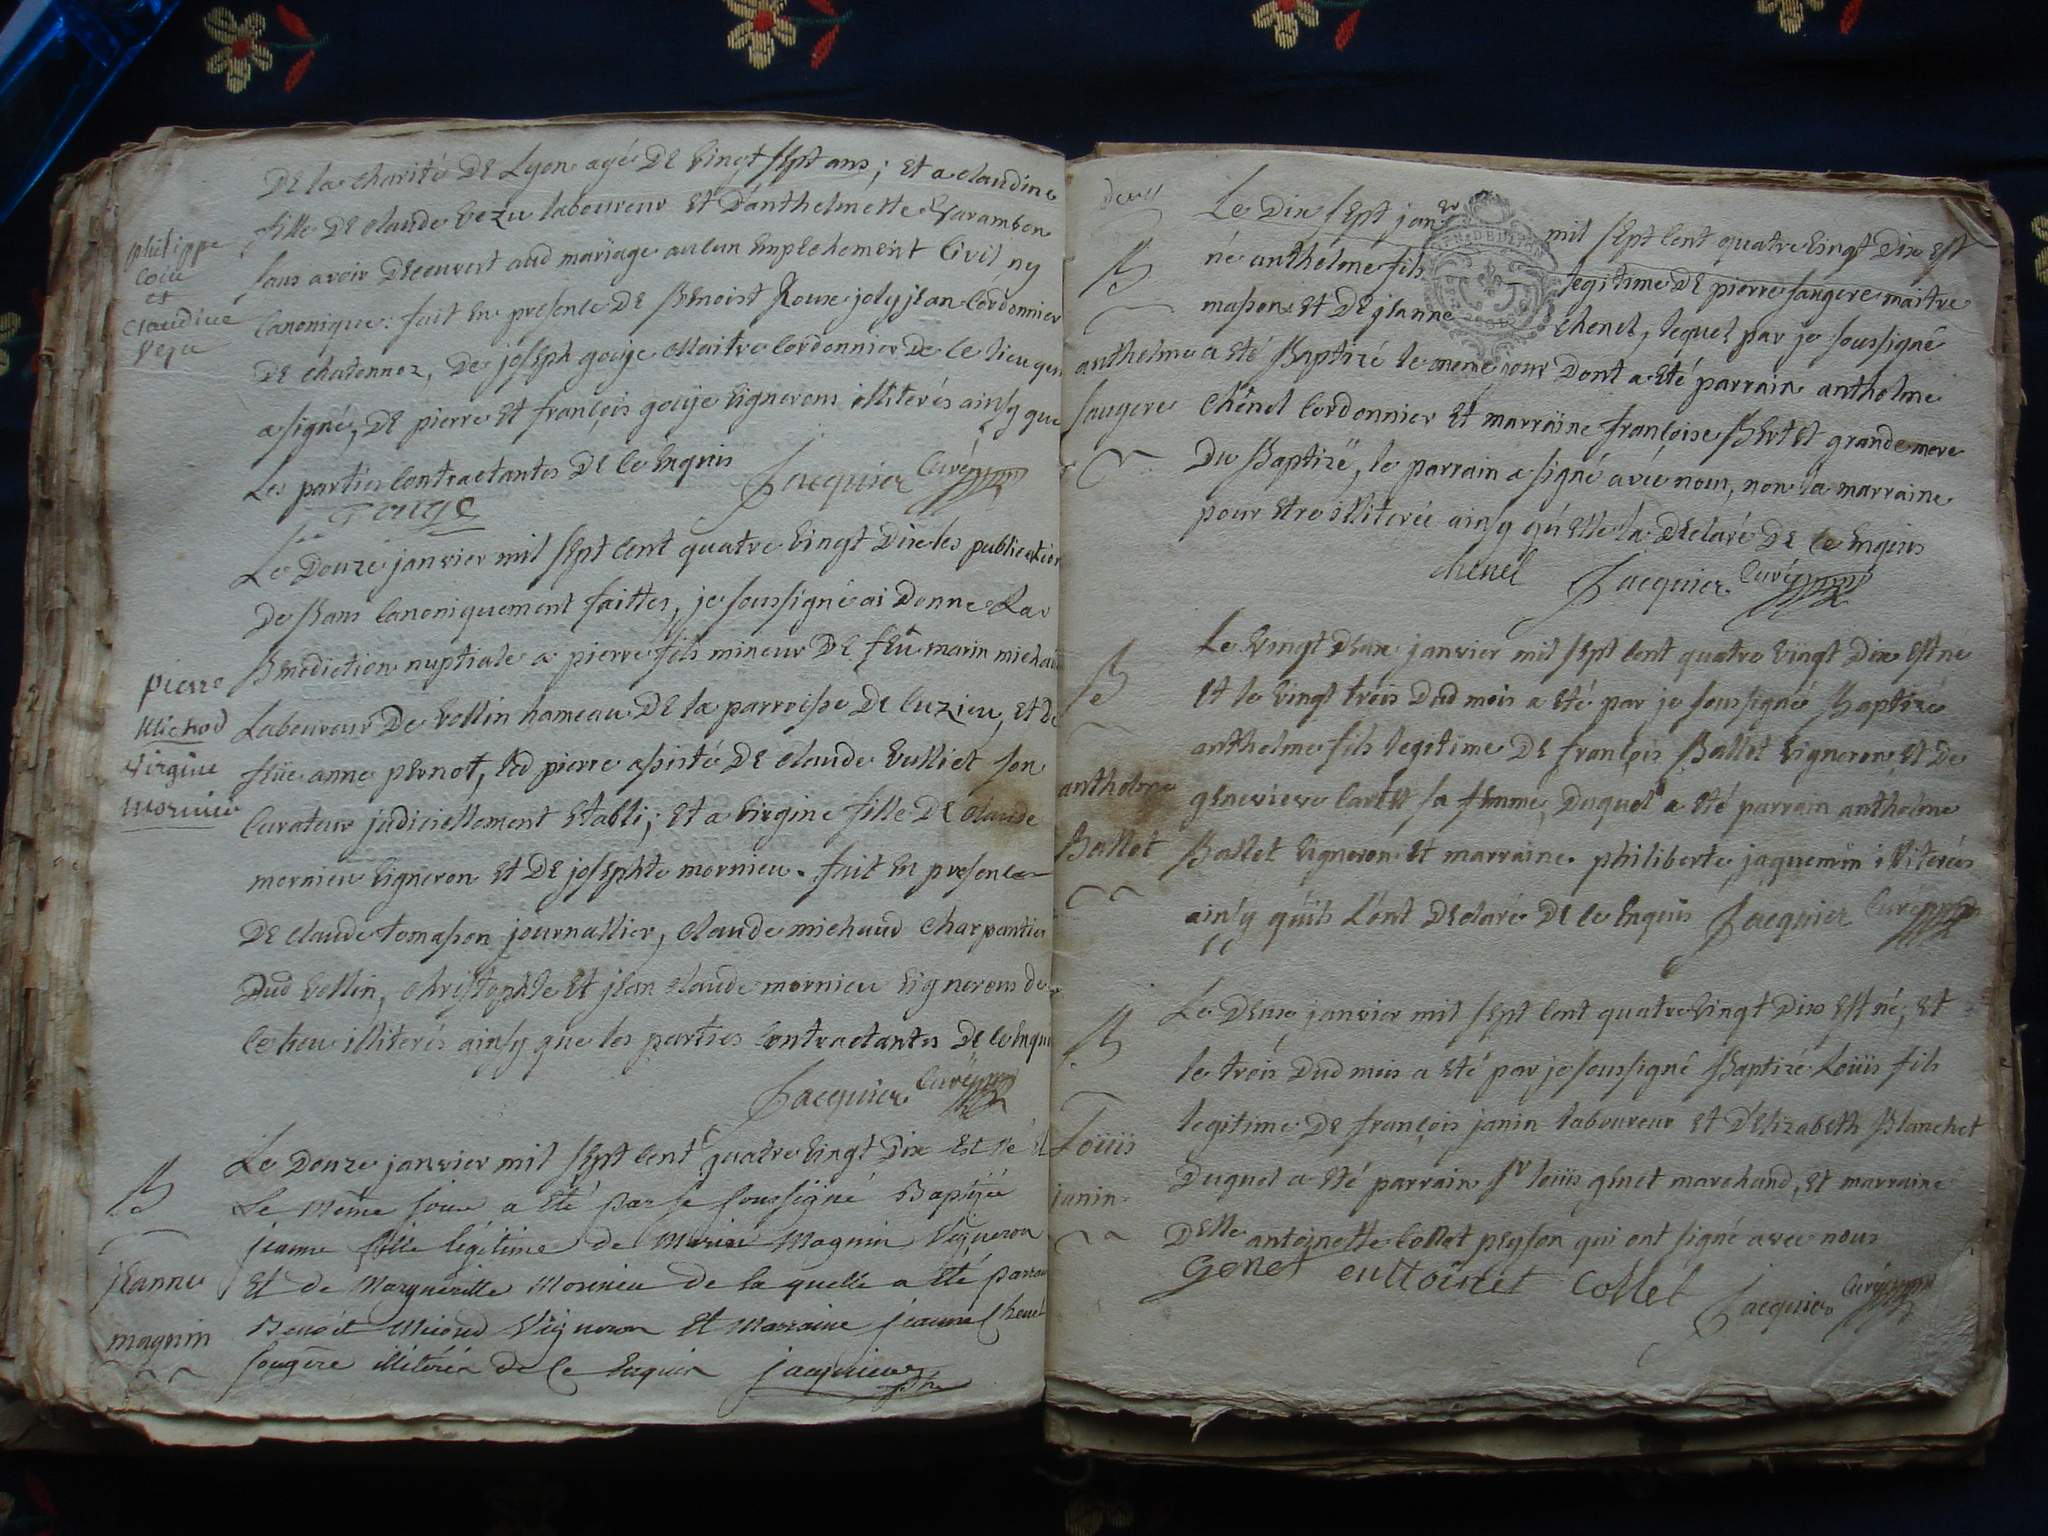 De la charité De Lyon agé De vingt sept ans; Et a claudine
fille De claude vezu laboureur Et D'anthelmette Varambon
sans avoir Decouvert aud mariage aucun Empechement Civil ny
Canonique: fait En presence De Benoist Roux joly jean Cordonnier
De chatonnoz, De joseph gouje Maitre Cordonnier De ce lieu qui
a signé, De pierre Et françois gouje vignerons illiterés ainsy que
Les parties Contractantes De ce Enquis Jacquier Curé
Gouge
philippe
et
Claudine
Vezu
Le Douze janvier mil sept cent quatre vingt Dix les publication
De Bans Canoniquement faittes, je soussigné ai Donné La
Benediction nuptiale a pierre fils mineur De feu marin michaud
Laboureur De vollin hameau De la parroisse De Cuzieu, Et De
feüe anne pernot, led pierre assisté De claude vulliet son
Curateur judiciellement Etabli; Et a virgine fille De claude
mornieu vigneron Et De josephte mornieu. fait En presence
De claude tomasson journallier, claude michaud charpentier
Dud vollin, christophle Et jean claude mornieu vignerons de
ce lieu illiterés ainsy que les parties Contractantes De ce Enquis
Jacquier Curé
pierre
Michod
Virgine
mornieu
Le Douze janvier mil sept cent quatre vingt Dix Est né Et
Le même jour a Eté par je soussigné Baptisée
jeanne fille légitime de Marin Magnin Vigneron
Et de Margueritte Mornieu de laquelle a été parrain
Benoit Micoud Vigneron Et Marraine jeanne Chenel
fougère illitérés de ce Enquis jacquier
B
jeanne
magnin
Deux
Le Dix sept janer mil sept cent quatre vingt Dix Est
né anthelme fils legitime De pierre faugere maitre
masson Et De jeanne Chenel, lequel par je soussigné
a Eté Baptizé le meme jour Dont a Eté parrain anthelme
Chenel Cordonnier Et marraine françoise Bertet grande mere
Du Baptizé, le parrain a signé avec nous, non la marraine
pour Etre illiterée ainsy qu'Elle la Declaré De ce Enquis
chenel Jacquier Curé
B
anthelme
faugere
Le vingt Deux janvier mil sept cent quatre vingt Dix Est né
Et le vingt trois Dud mois a Eté par je soussigné Baptizé
anthelme fils legitime De françois Ballet vigneron Et De
genevieve Cartet sa femme, Duquel a Eté parrain anthelme
Ballet vigneron Et marraine philiberte jaquemin illiterés
ainsy qu'ils L'ont Declaré De ce Enquis Jacquier Curé
B
anthelme
Ballet
Le Deux janvier mil sept cent quatre vingt Dix Est né, Et
le trois Dud mois a Eté par je soussigné Baptizé Loüis fils
legitime De françois janin laboureur Et D'Elizabeth Blanchet
Duquel a Eté parrain Sr loüis genet marchand, Et marraine
Delle antoinette Collet peyson qui ont signé avec nous
Genet enttoinet Collet Jacquier Curé
B
Loüis
janin